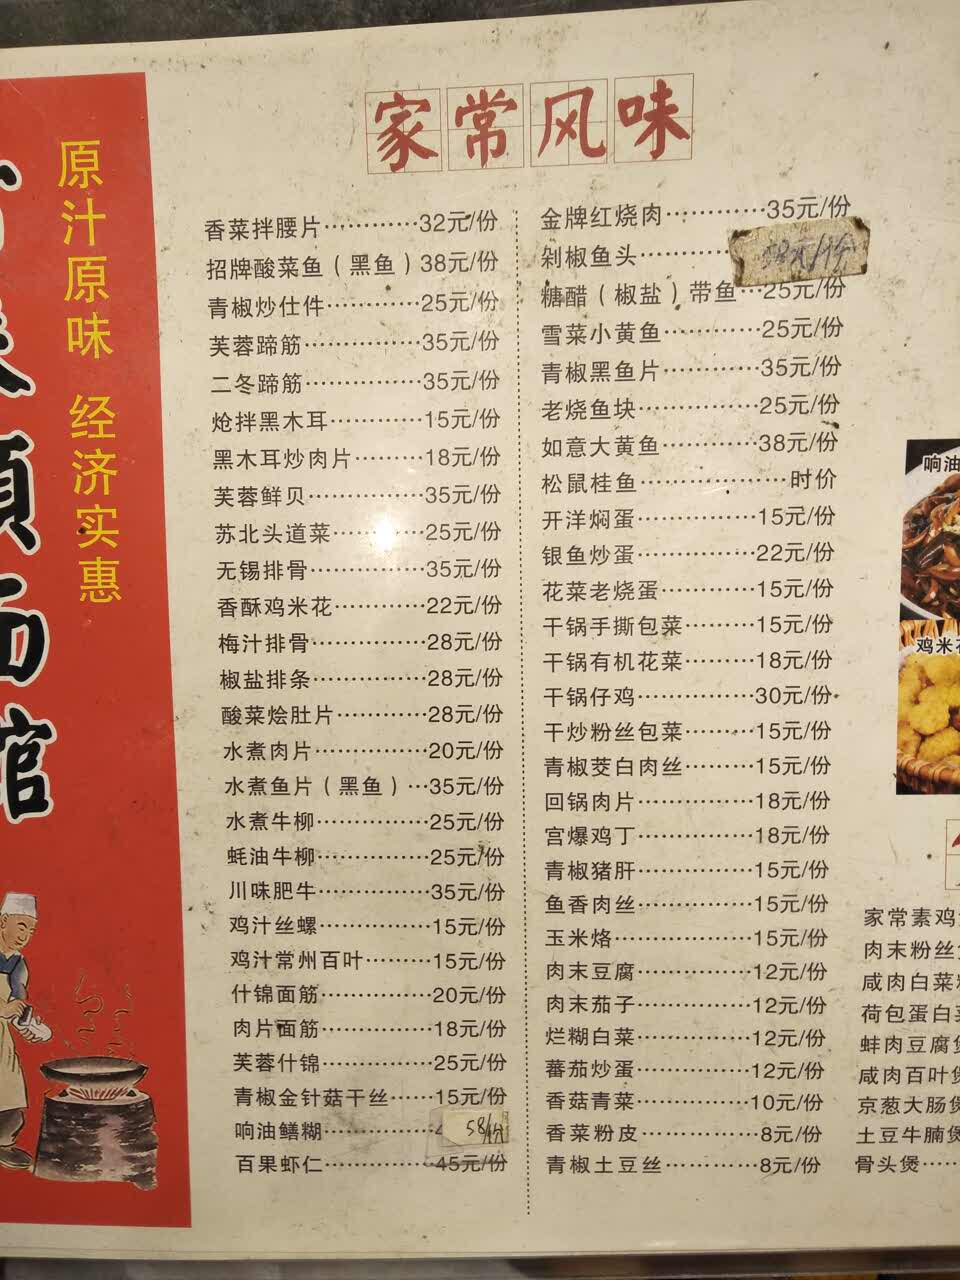 原汁原味 经济实惠
家常风味
香菜拌腰片…………32元/份
招牌酸菜鱼（黑鱼）38元/份
青椒炒仕件…………25元/份
芙蓉蹄筋……………35元/份
二冬蹄筋……………35元/份
炝拌黑木耳…………15元/份
黑木耳炒肉片………18元/份
芙蓉鲜贝……………35元/份
苏北头道菜…………25元/份
无锡排骨……………35元/份
香酥鸡米花…………22元/份
梅汁排骨……………28元/份
椒盐排条……………28元/份
酸菜烩肚片…………28元/份
水煮肉片……………20元/份
水煮鱼片（黑鱼）…35元/份
水煮牛柳……………25元/份
蚝油牛柳……………25元/份
川味肥牛……………35元/份
鸡汁丝螺……………15元/份
鸡汁常州百叶………15元/份
什锦面筋……………20元/份
肉片面筋……………18元/份
芙蓉什锦……………25元/份
青椒金针菇干丝……15元/份
响油鳝糊……………58/份
百果虾仁……………45元/份
金牌红烧肉…………35元/份
剁椒鱼头…………58元/份
糖醋（椒盐）带鱼…25元/份
雪菜小黄鱼…………25元/份
青椒黑鱼片…………35元/份
老烧鱼块……………25元/份
如意大黄鱼…………38元/份
松鼠桂鱼………………时价
开洋焖蛋……………15元/份
银鱼炒蛋……………22元/份
花菜老烧蛋…………15元/份
干锅手撕包菜………15元/份
干锅有机花菜………18元/份
干锅仔鸡……………30元/份
干炒粉丝包菜………15元/份
青椒茭白肉丝………15元/份
回锅肉片……………18元/份
宫爆鸡丁……………18元/份
青椒猪肝……………15元/份
鱼香肉丝……………15元/份
玉米烙………………15元/份
肉末豆腐……………12元/份
肉末茄子……………12元/份
烂糊白菜……………12元/份
蕃茄炒蛋……………12元/份
香菇青菜……………10元/份
香菜粉皮……………8元/份
青椒土豆丝…………8元/份
响油
鸡米花
家常素鸡
肉末粉丝
咸肉白菜
荷包蛋白菜
蚌肉豆腐煲
咸肉百叶煲
京葱大肠煲
土豆牛腩煲
骨头煲……